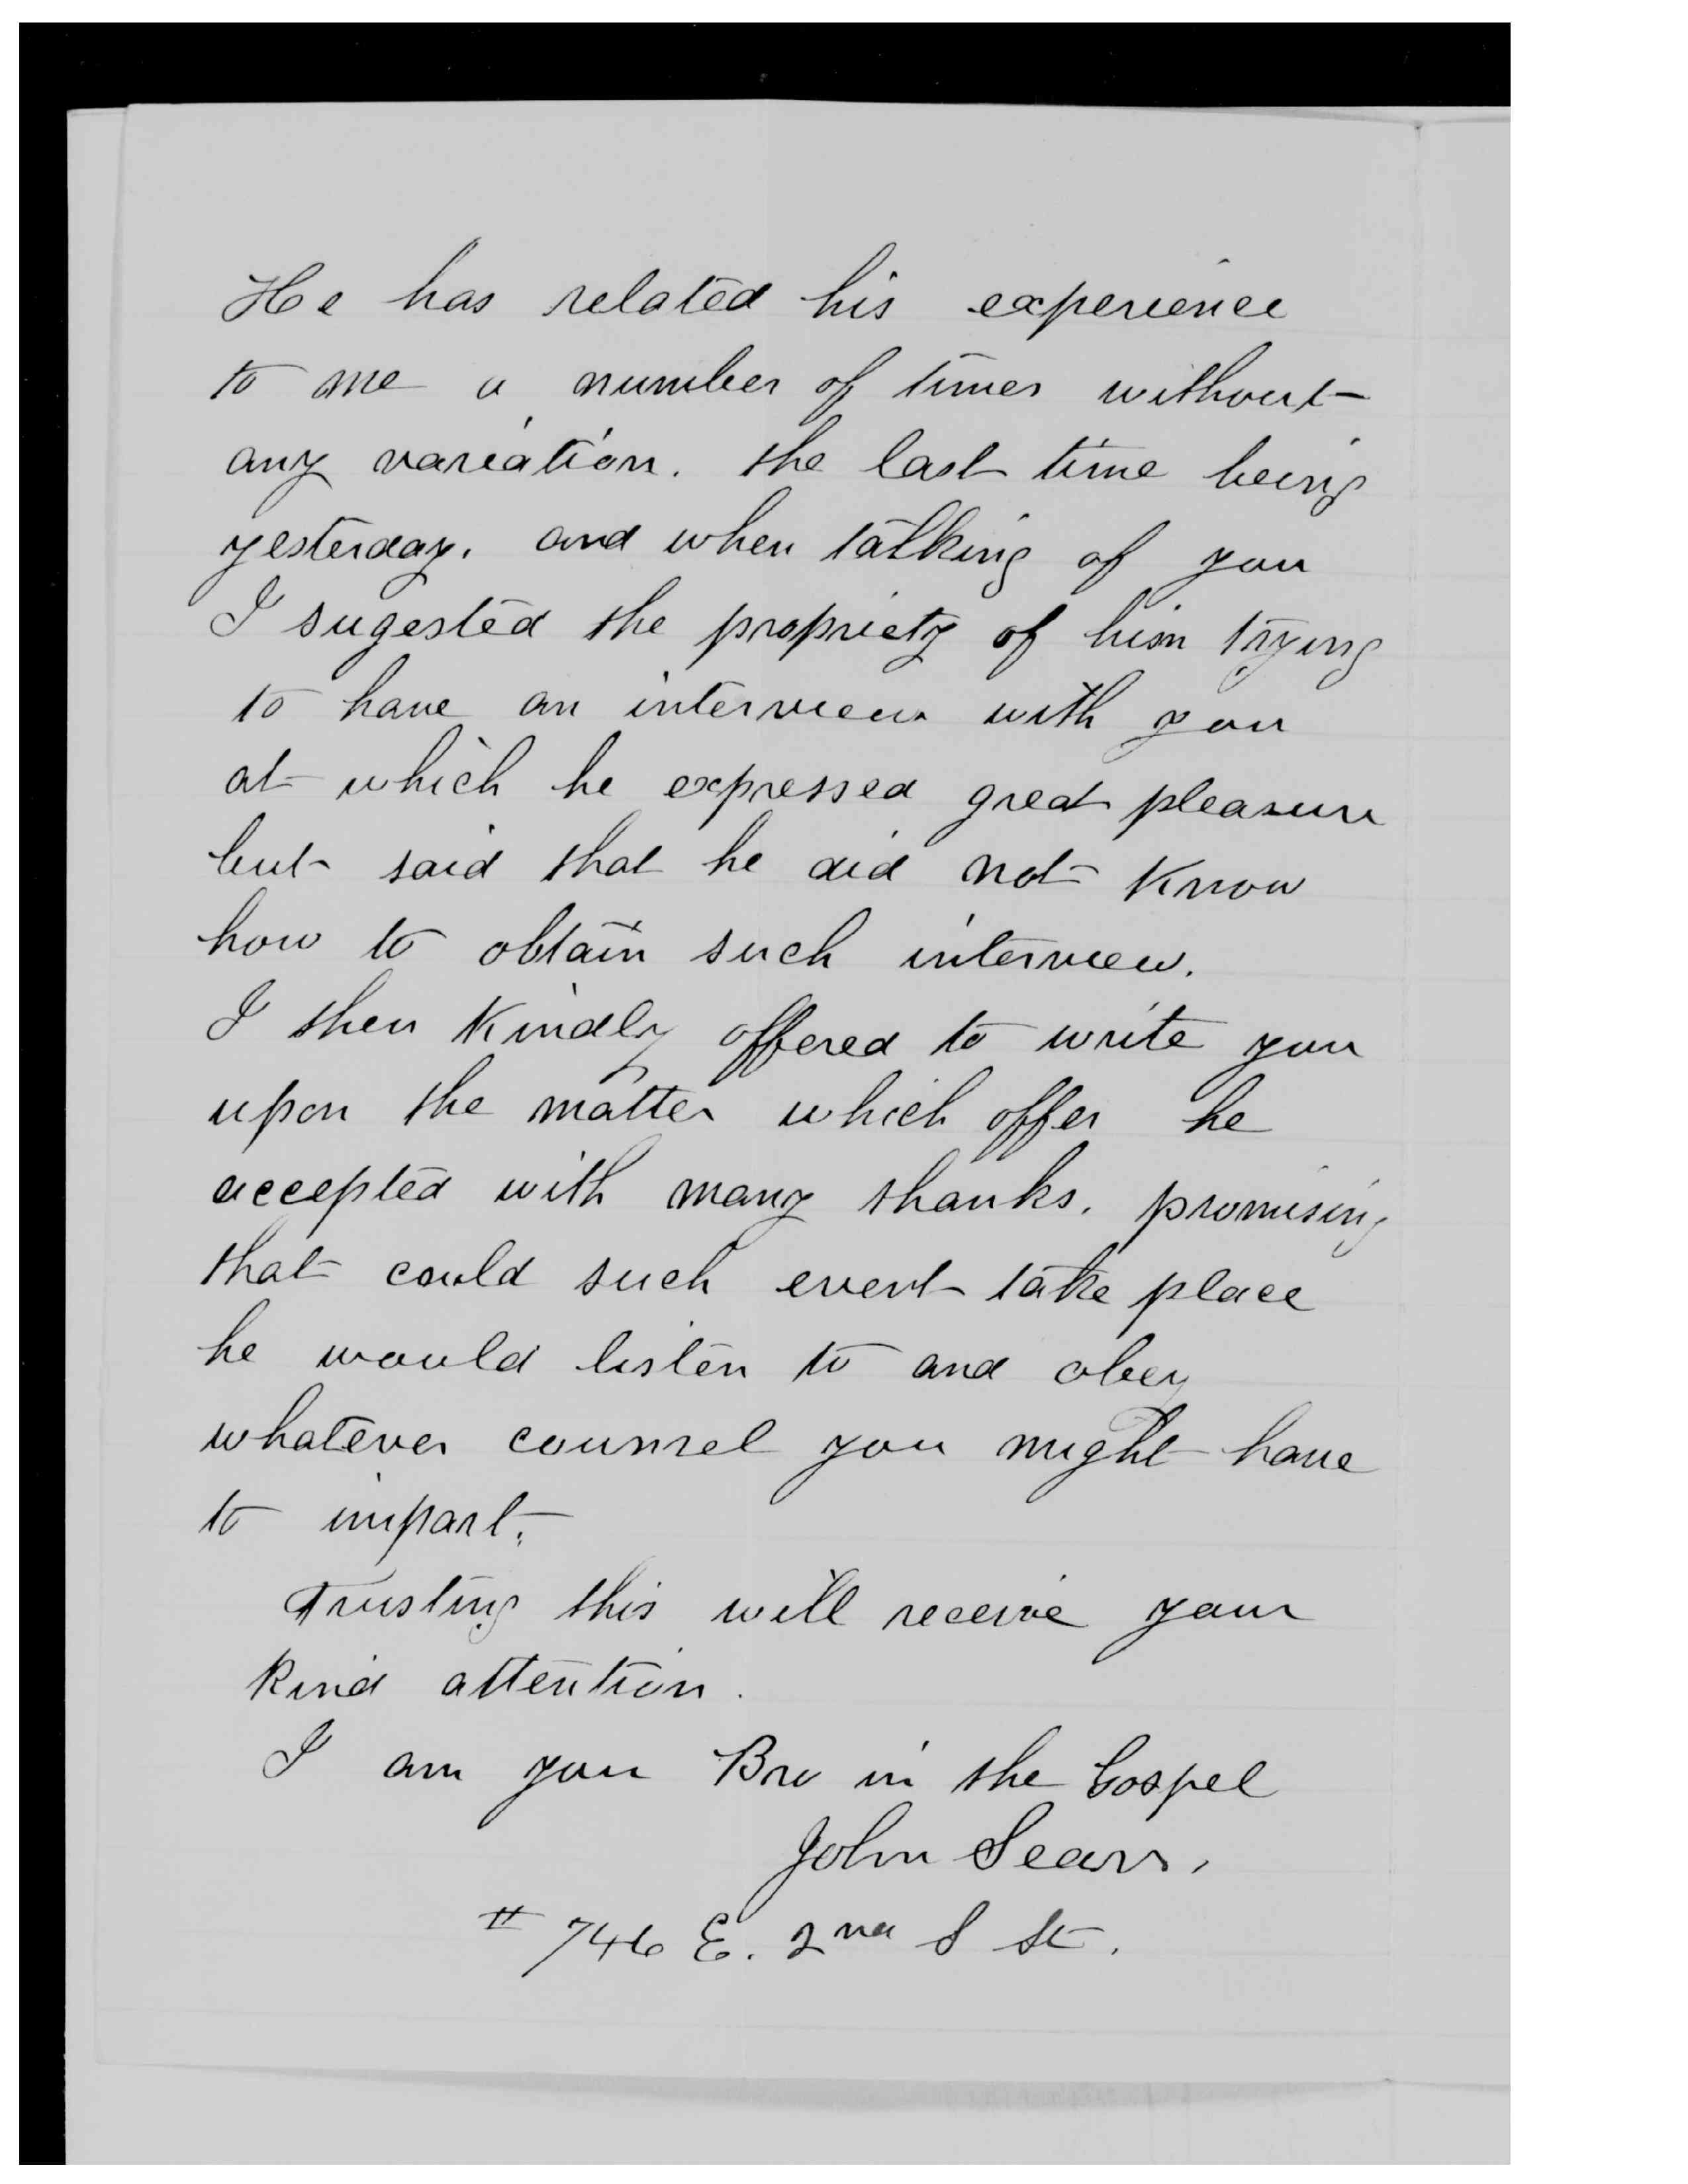 He has related his experience
to me a number of times without
any variation. the last time being
yesterday. and when talking of you
I sugested the propriety of him trying
to have an interview with you
at which he expressed great pleasure
but said that he did not know
how to obtain such interview.
I then kindly offered to write you
upon the matter which offer he
accepted with many thanks. promising
that could such event take place
he would listen to and obey
whatever counsel you might have
to impart.
Trusting this will receive your
kind attention.
I am your Bro in the Gospel
John Sears.
# 746 E. 2nd S St.